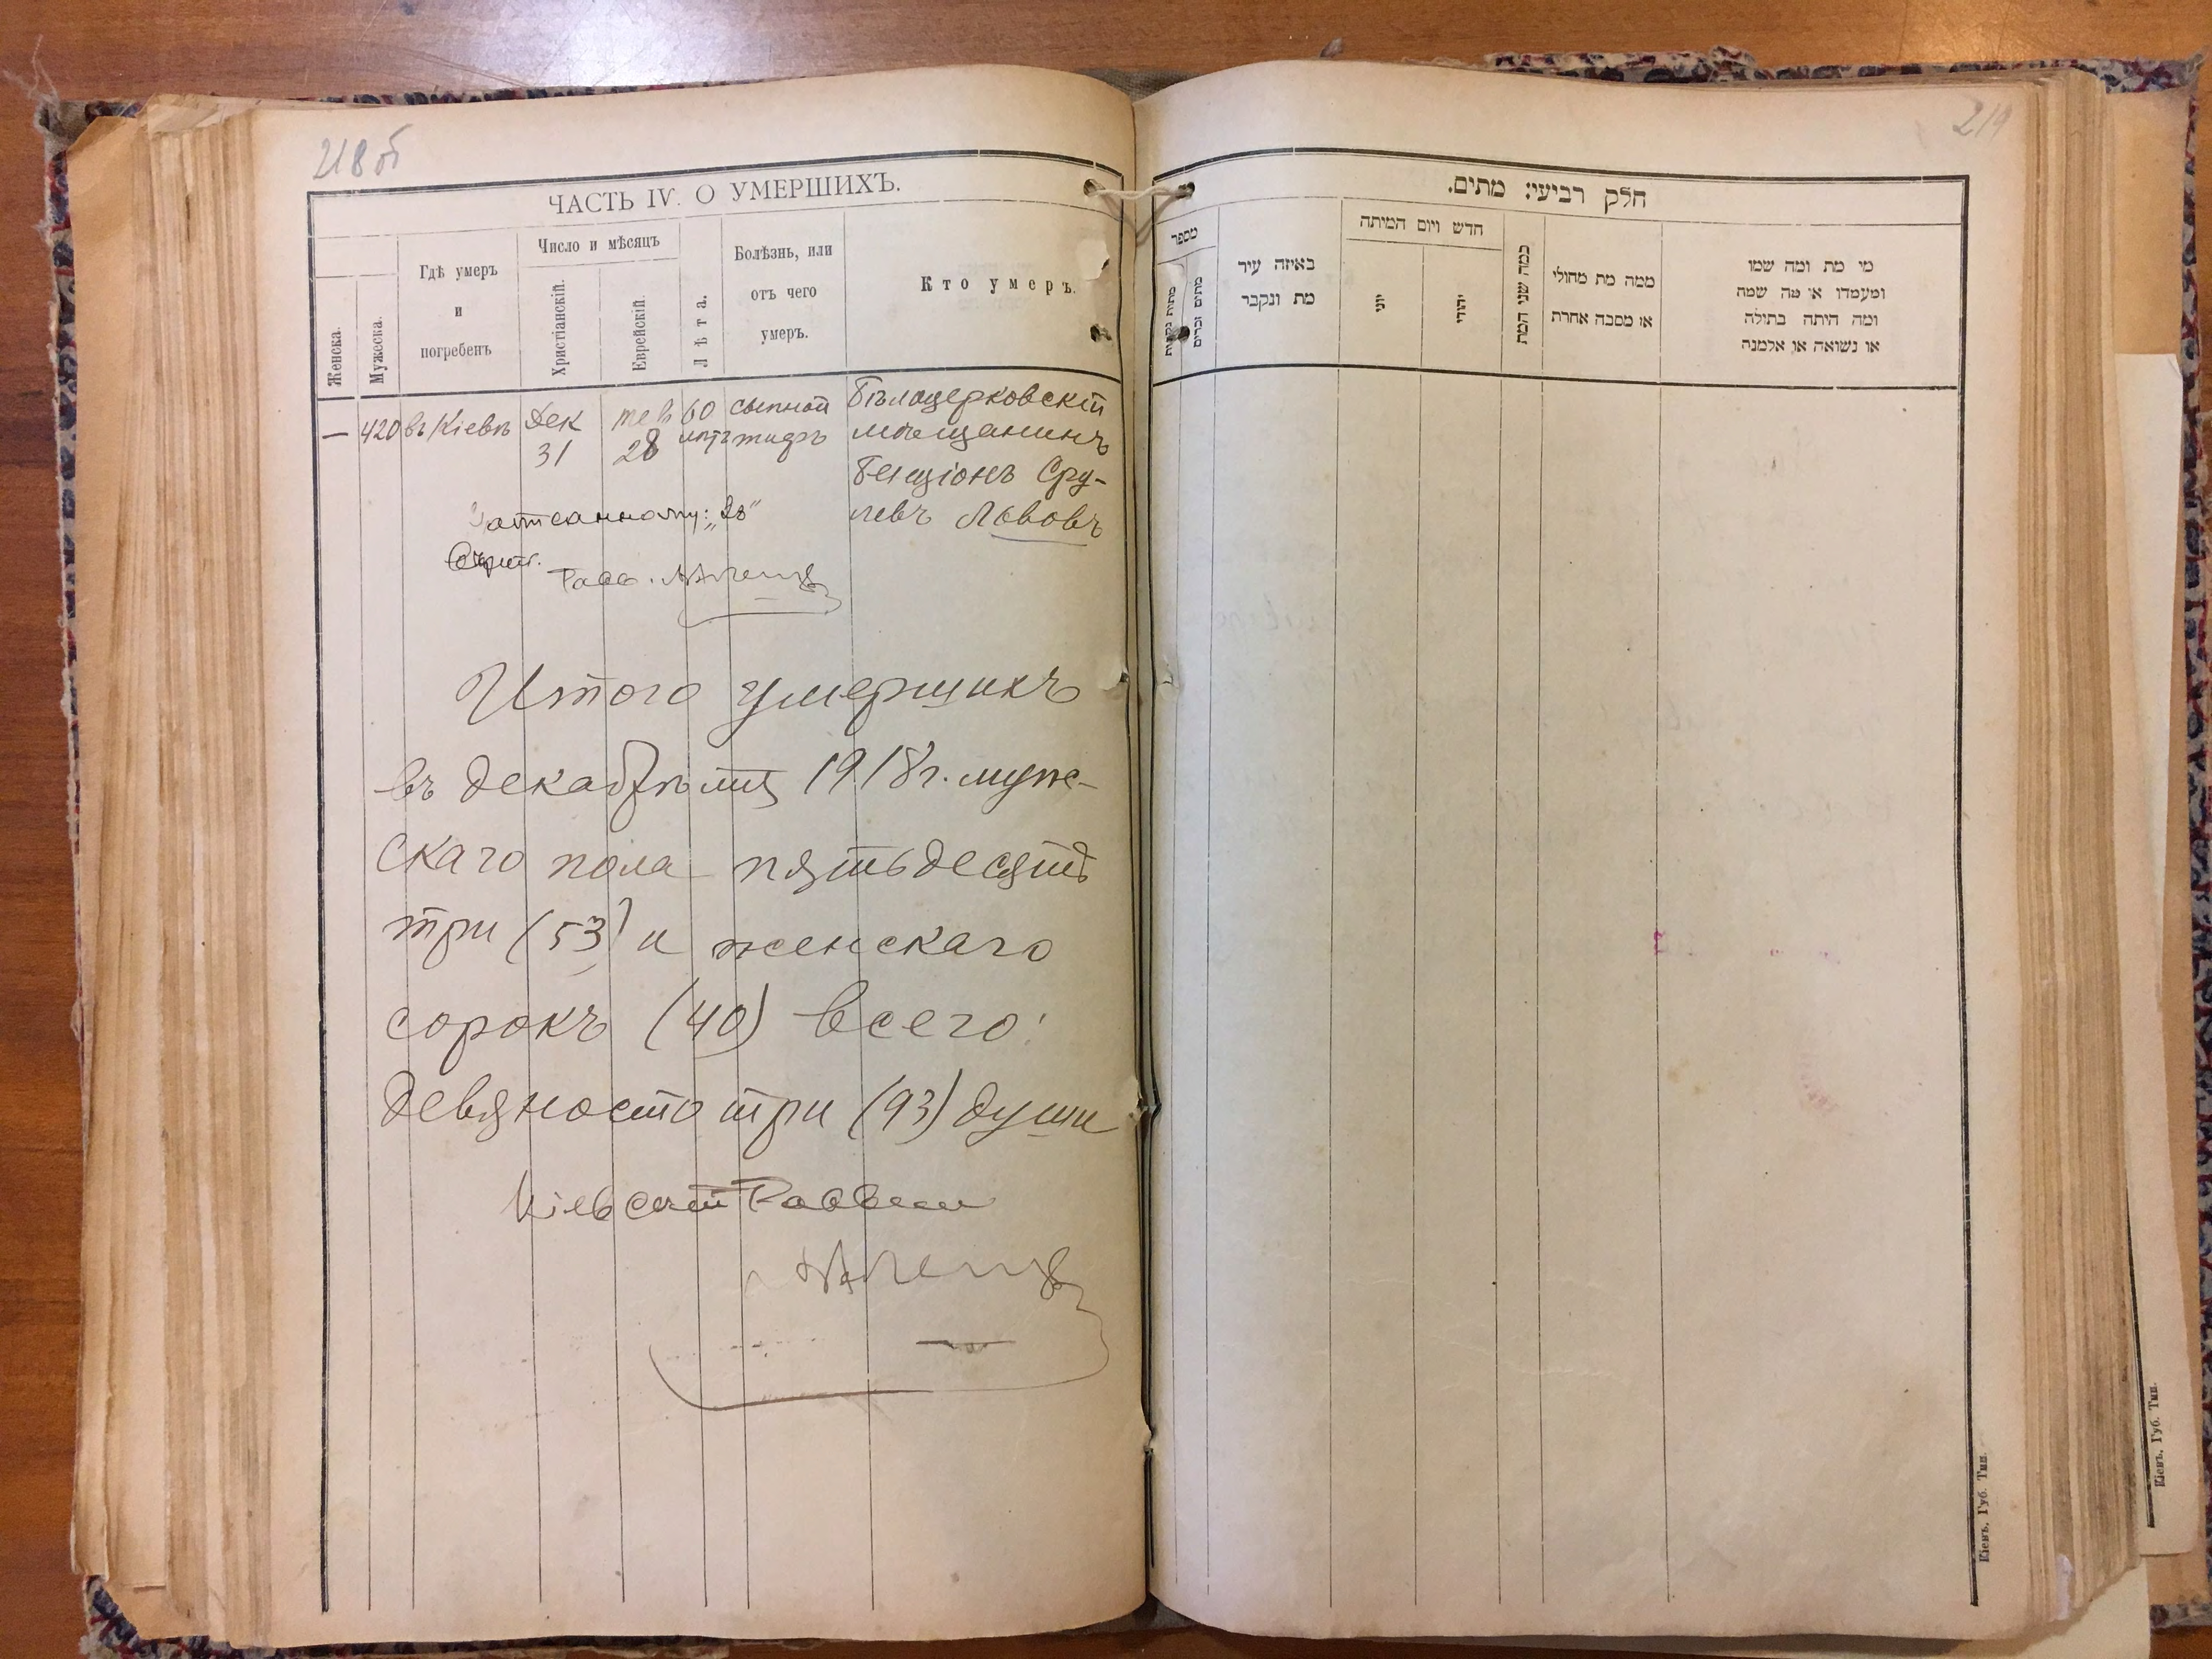 218 об
ЧАСТЬ IV. О УМЕРШИХЪ.
Женска.
Мужеска.
Гдѣ умеръ
и
погребенъ
Число и мѣсяцъ
Христіанскій.
Еврейскій.
Лѣта.
Болѣзнь, или
отъ чего
умеръ.
Кто умеръ.
— 420 въ Кіевѣ Дек 31 тев 28 60 лѣтъ сыпной тифъ
Бѣлоцерковскій
мѣщанинъ
Бенціонъ Сру-
левъ Львовъ
"28"
Равв.
Итого умершихъ
въ декабрѣ мц 1918 г. муже-
скаго пола пятьдесятъ
три (53) и женскаго
сорокъ (40) всего:
девяносто три (93) души
Кіевскій Раввин
219
חלק רביעי: מתים.
מספר
מתות נקבות
מתים זכרים
באיזה עיר
מת ונקבר
חדש ויום המיתה
יוני
יהודי
כמה שני המת
ממה מת מחולי
או מסבה אחרת
מי מת ומה שמו
ומעמדו או מה שמה
ומה היתה בתולה
או נשואה או אלמנה
Кіевъ, Губ. Тип.
Кіевъ, Губ. Тип.